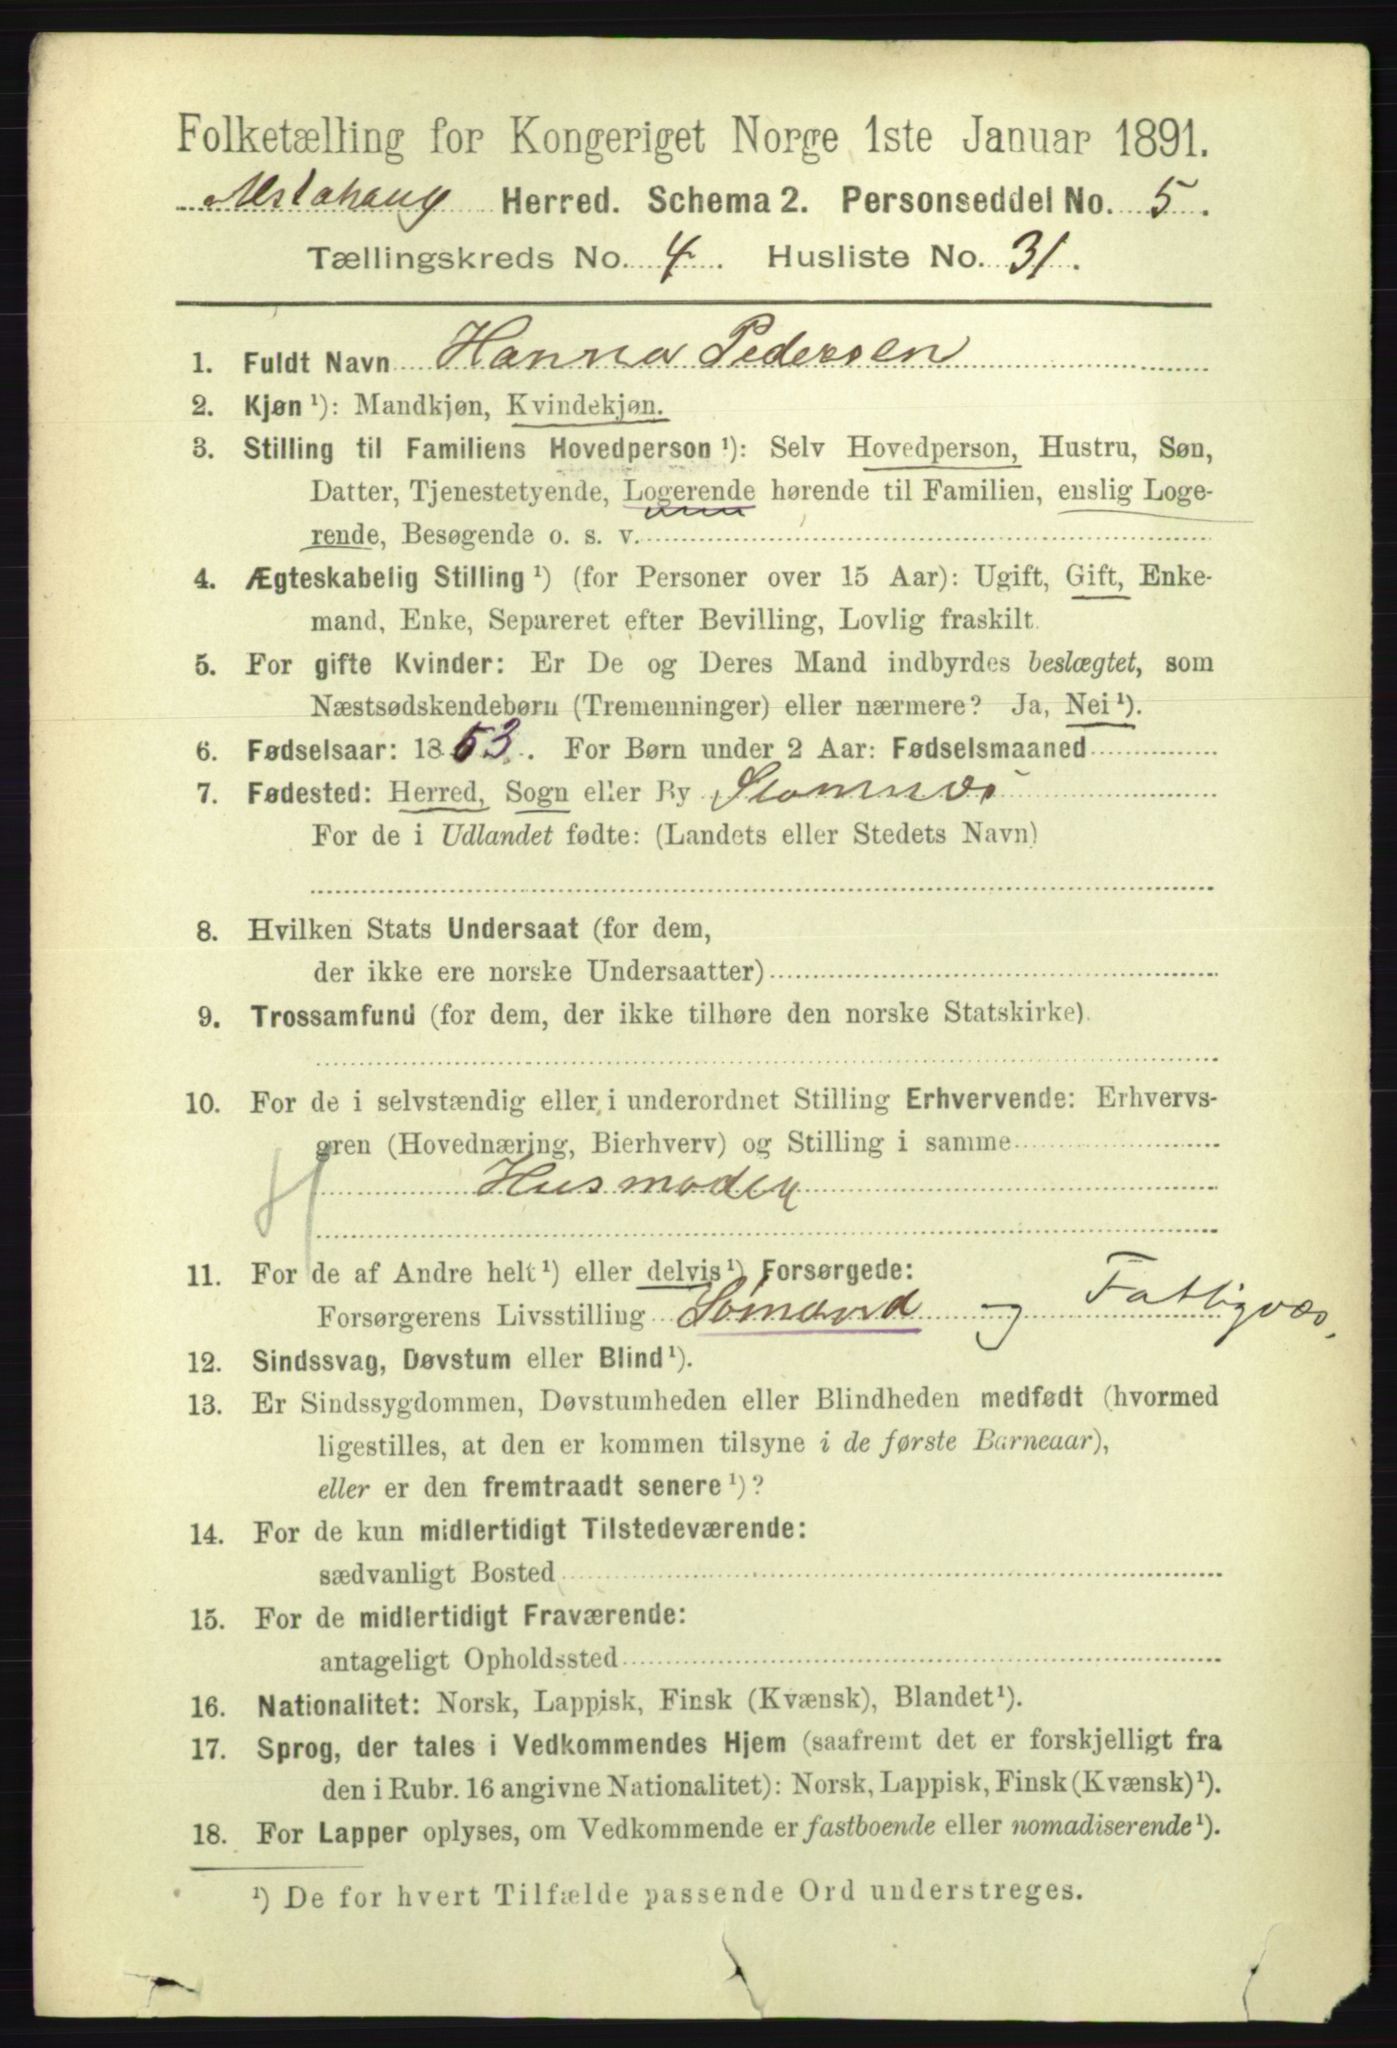 Folketælling for Kongeriget Norge 1ste Januar 1891.
Alstahaug Herred. Schema 2. Personseddel No. 5.
Tællingskreds No. 4. Husliste No. 31.
1. Fuldt Navn Hanna Pedersen
2. Kjøn ¹): Mandkjøn, Kvindekjøn.
3. Stilling til Familiens Hovedperson ¹): Selv Hovedperson, Hustru, Søn,
Datter, Tjenestetyende, Logerende hørende til Familien, enslig Loge-
rende, Besøgende o. s. v.
4. Ægteskabelig Stilling ¹) (for Personer over 15 Aar): Ugift, Gift, Enke-
mand, Enke, Separeret efter Bevilling, Lovlig fraskilt.
5. For gifte Kvinder: Er De og Deres Mand indbyrdes beslægtet, som
Næstsødskendebørn (Tremenninger) eller nærmere? Ja, Nei ¹).
6. Fødselsaar: 1853. For Børn under 2 Aar: Fødselsmaaned
7. Fødested: Herred, Sogn eller By Stamnes
For de i Udlandet fødte: (Landets eller Stedets Navn)
8. Hvilken Stats Undersaat (for dem,
der ikke ere norske Undersaatter)
9. Trossamfund (for dem, der ikke tilhøre den norske Statskirke).
10. For de i selvstændig eller i underordnet Stilling Erhvervende: Erhvervs-
gren (Hovednæring, Bierhverv) og Stilling i samme
H Husmoder
11. For de af Andre helt ¹) eller delvis ¹) Forsørgede:
Forsørgerens Livsstilling Sømand og Fattigvæs.
12. Sindssvag, Døvstum eller Blind ¹).
13. Er Sindssygdommen, Døvstumheden eller Blindheden medfødt (hvormed
ligestilles, at den er kommen tilsyne i de første Barneaar),
eller er den fremtraadt senere ¹)?
14. For de kun midlertidigt Tilstedeværende:
sædvanligt Bosted
15. For de midlertidigt Fraværende:
antageligt Opholdssted
16. Nationalitet: Norsk, Lappisk, Finsk (Kvænsk), Blandet ¹).
17. Sprog, der tales i Vedkommendes Hjem (saafremt det er forskjelligt fra
den i Rubr. 16 angivne Nationalitet): Norsk, Lappisk, Finsk (Kvænsk) ¹).
18. For Lapper oplyses, om Vedkommende er fastboende eller nomadiserende ¹).
¹) De for hvert Tilfælde passende Ord understreges.